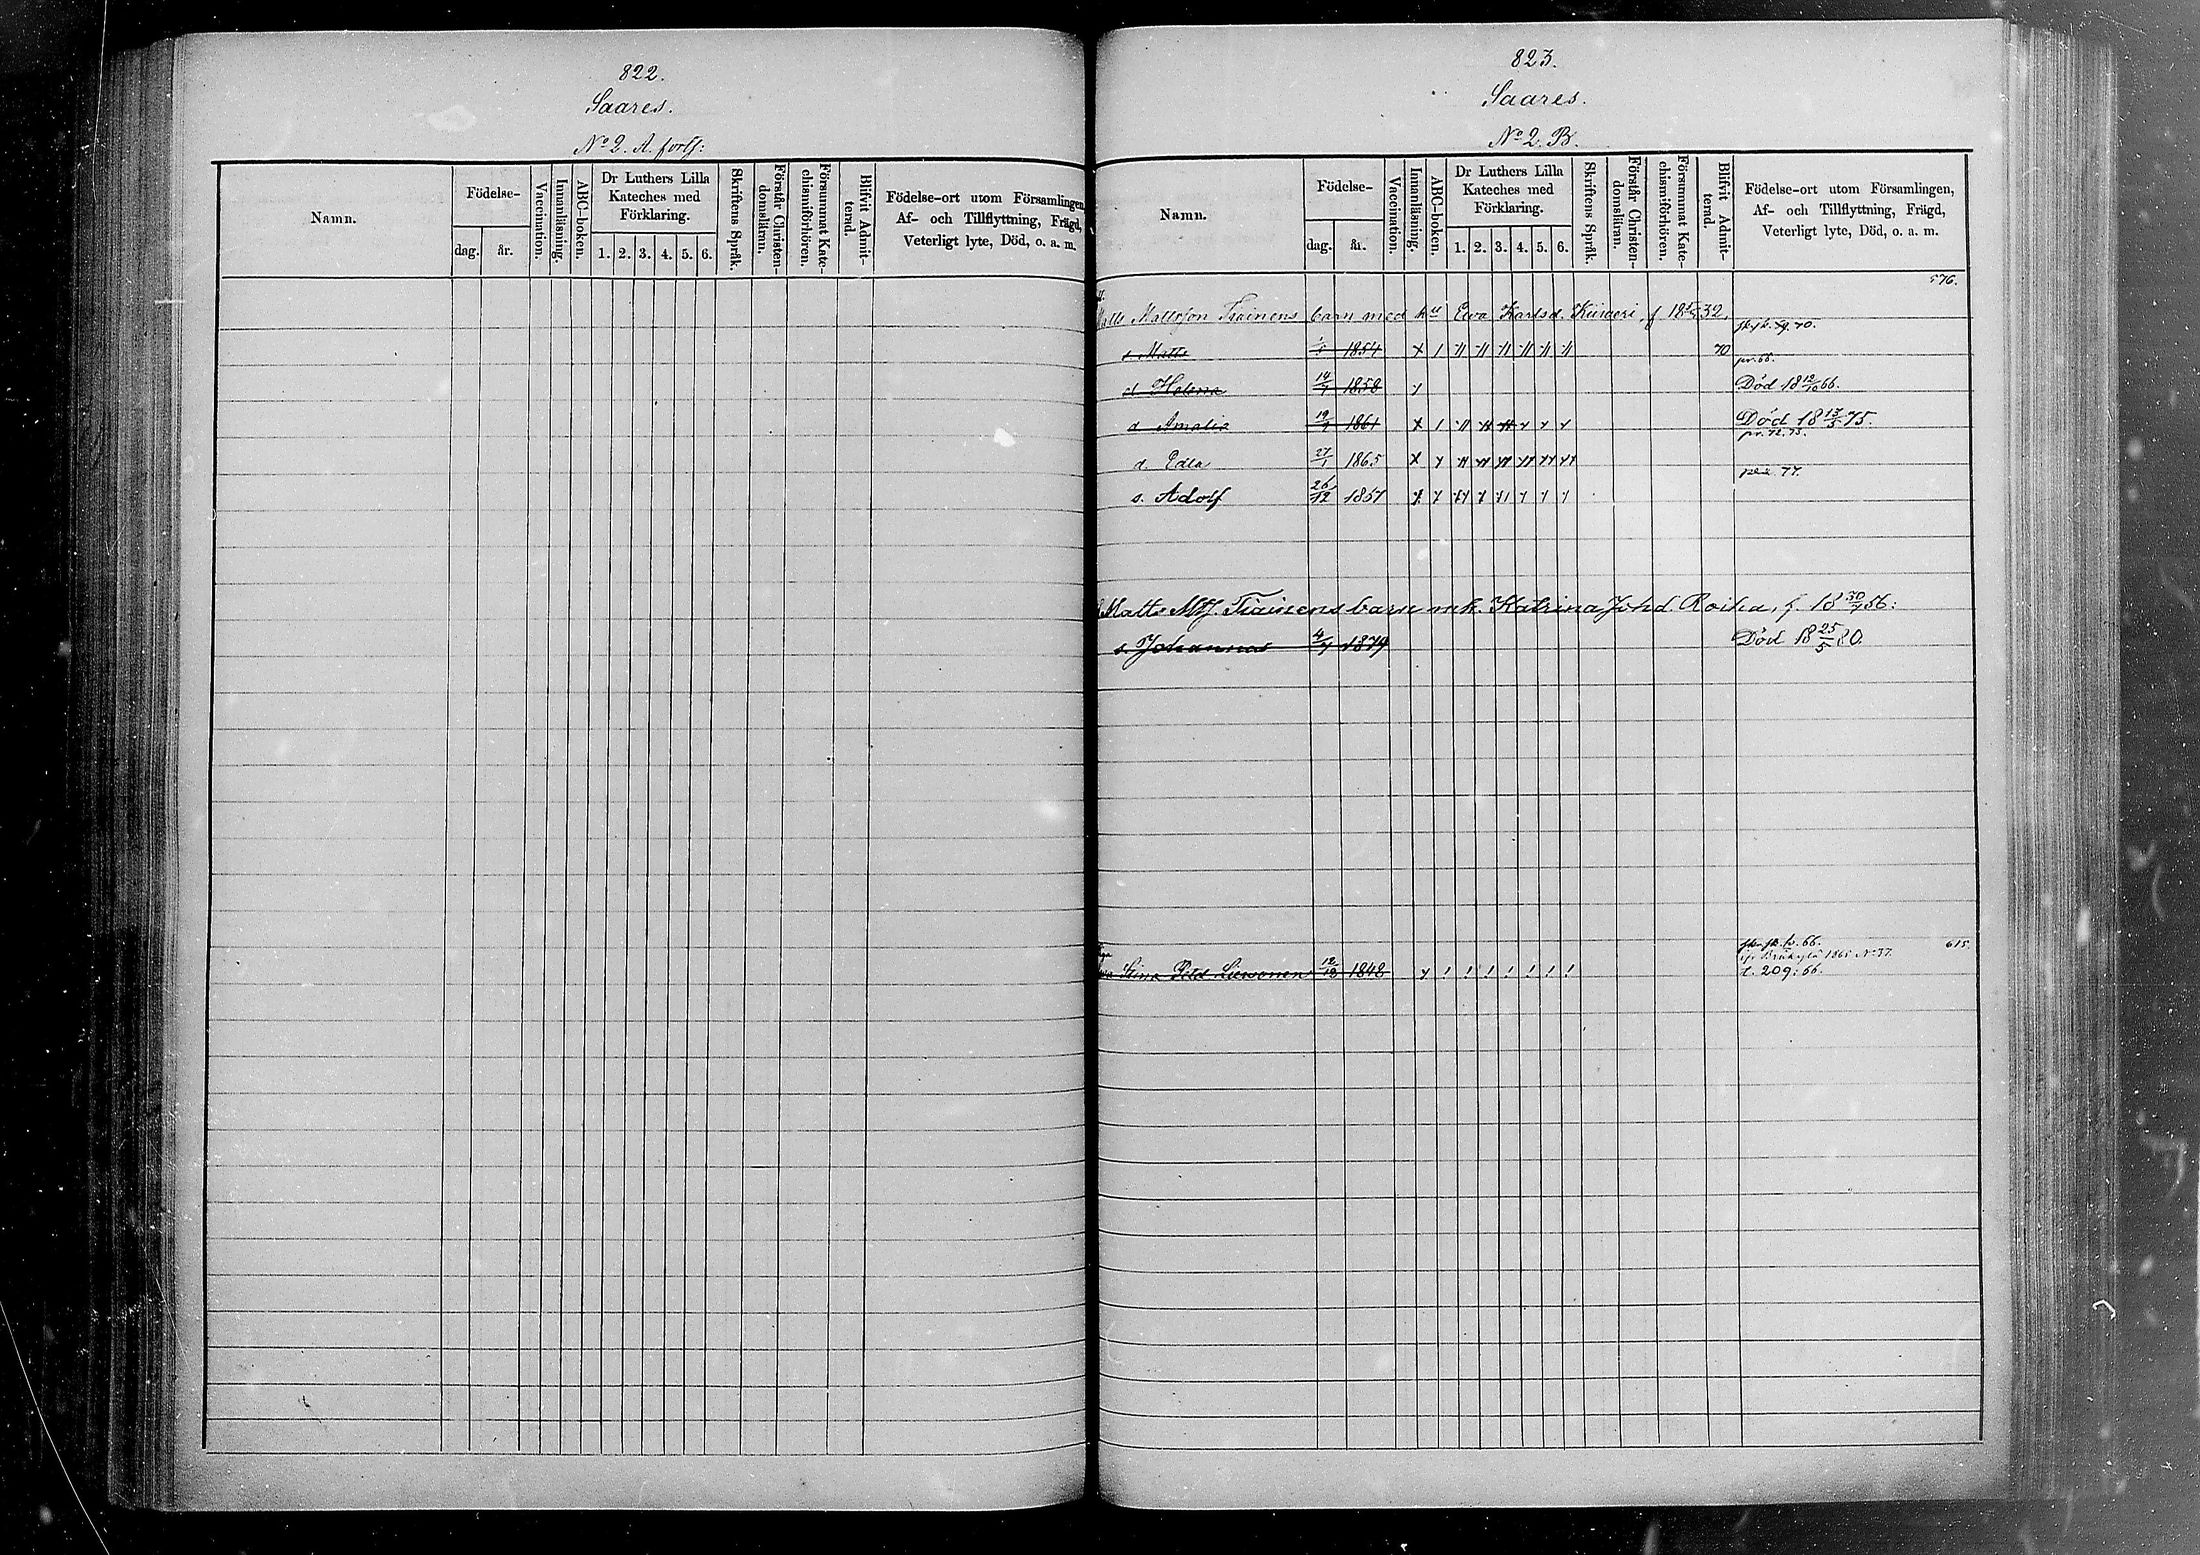 822.
Saares.
No 2. A. forts:
Namn.
Födelse-
dag. år.
Vaccination.
Innanläsning.
ABC-boken.
Dr Luthers Lilla
Kateches med
Förklaring.
1. 2. 3. 4. 5. 6.
Skriftens Språk.
Förstår Christen-
domsläran.
Försummat Kate-
chismiförhören.
Blifvit Admit-
terad.
Födelse-ort utom Församlingen,
Af- och Tillflyttning, Frägd,
Veterligt lyte, Död, o. a. m.
823.
Saares.
No 2. B.
Namn.
Födelse-
dag. år.
Vaccination.
Innanläsning.
ABC-boken.
Dr Luthers Lilla
Kateches med
Förklaring.
1. 2. 3. 4. 5. 6.
Skriftens Språk.
Förstår Christen-
domsläran.
Försummat Kate-
chismiförhören.
Blifvit Admit-
terad.
Födelse-ort utom Församlingen,
Af- och Tillflyttning, Frägd,
Veterligt lyte, Död, o. a. m.
576.
Matts Mattsson Tiainens barn med hu Ewa Karlsd.
s. Matts 1854 70
d. Helena 14/7 1858 Död 18 12/10 66.
d. Amalia 1861 Död 18 13/3 75.
pr. 72. 73.
d. Edla 27/1 1865
77.
s. Adolf 26/12 1857
Matts Tiainens barn m h. Katrina Johd. Roiha, f. 18 30/7 56:
s. Johannes 4/7 1879 Död 18 25/5 80.
615.
Stina Petd 12/12 1848 1865 No 37.
t. 209: 66.